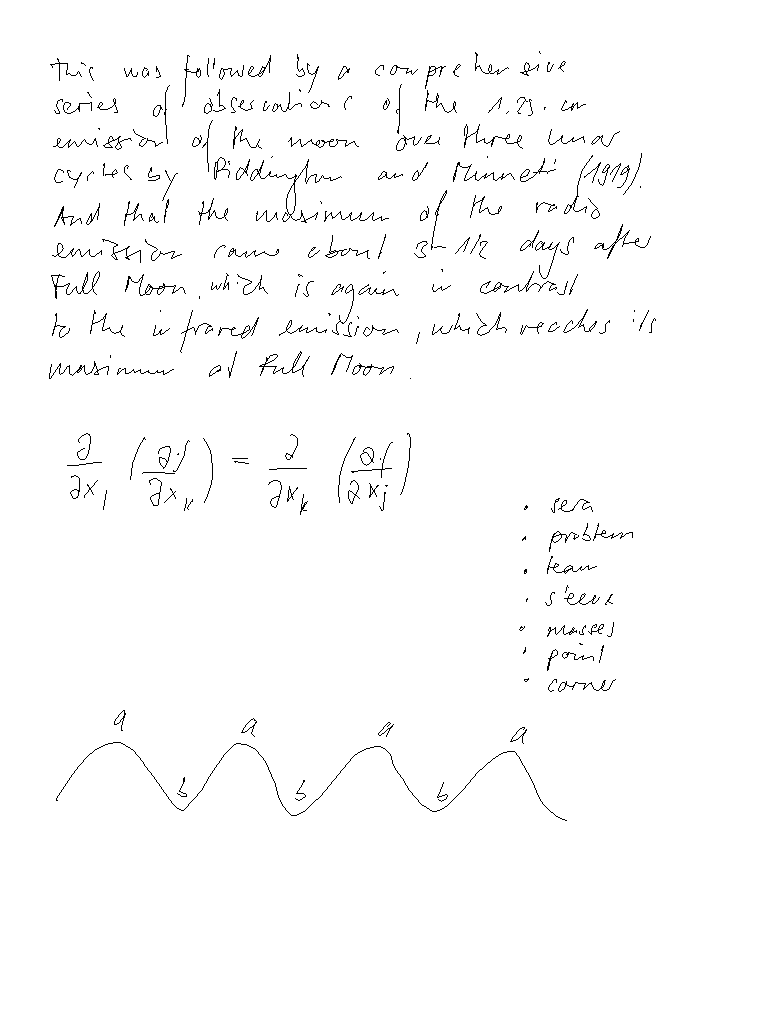 This was followed by a comprehensive
series of observations of the 1.25. cm
emission of the moon over three lunar
cycles by Piddington and Minnett (1919).
And that the maximum of the radio
emission came about 3-1/2 days after
Full Moon, which is again in contrast
to the infrared emission, which reaches its
maximum at Full Moon.
∂/∂x_j (∂f/∂x_k) = ∂/∂x_k (∂f/∂x_j)
• sera
• problem
• team
• masses
• point
• corner
a a a a
b b b